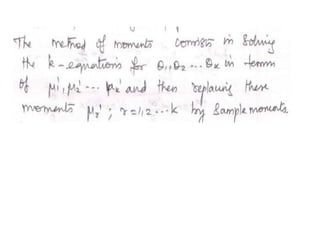 The method of moments consists in solving
the k-equations for θ₁, θ₂ ... θₖ in terms
of μ₁', μ₂' ... μₖ' and then replacing these
moments μᵣ' ; r=1,2 ... k by sample moments.